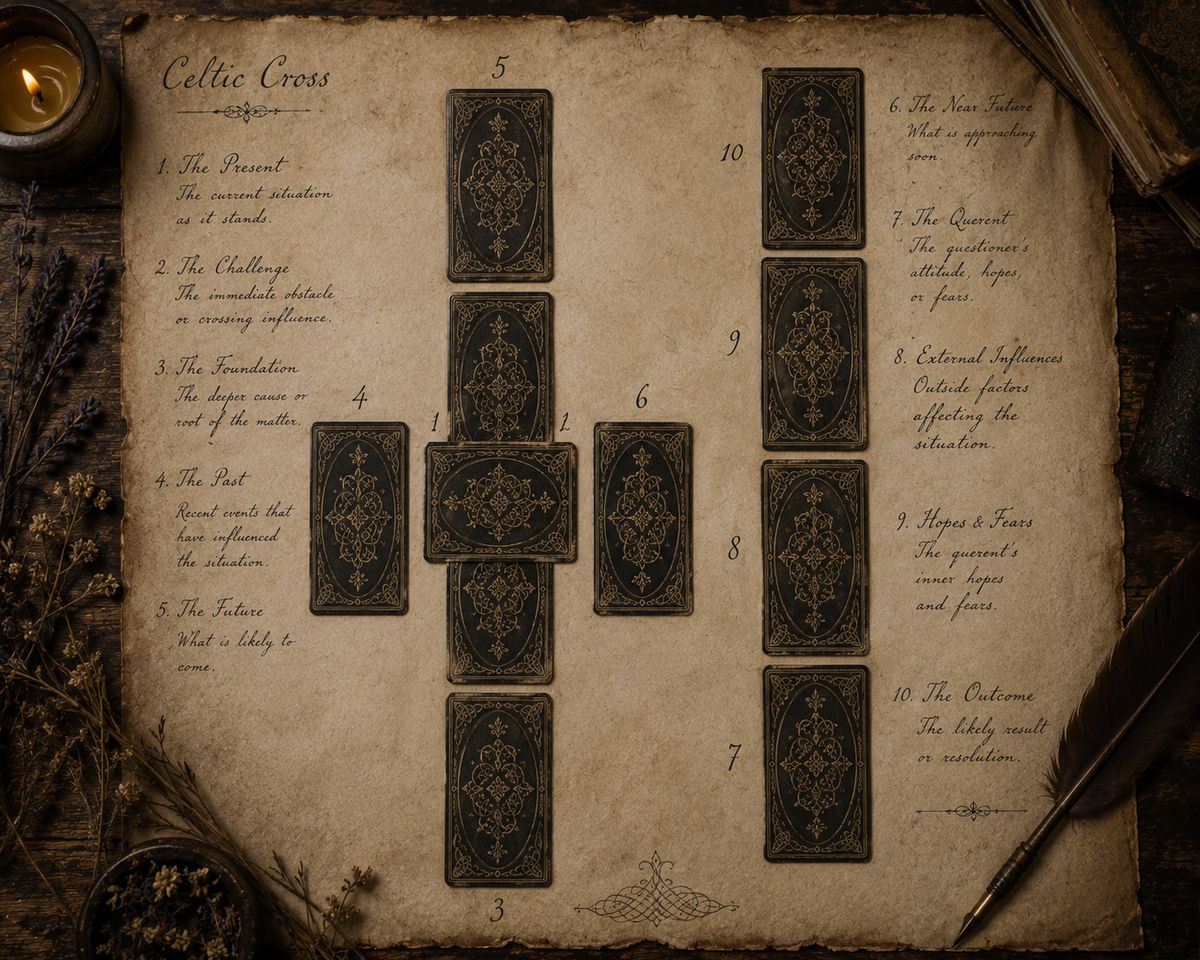 Celtic Cross
1. The Present
The current situation
as it stands.
2. The Challenge
The immediate obstacle
or crossing influence.
3. The Foundation
The deeper cause or
root of the matter.
4. The Past
Recent events that
have influenced
the situation.
5. The Future
What is likely to
come.
5
4
1
1.
6
3
10
9
8
7
6. The Near Future
What is approaching
soon.
7. The Querent
The questioner's
attitude, hopes,
or fears.
8. External Influences
Outside factors
affecting the
situation.
9. Hopes & Fears
The querent's
inner hopes
and fears.
10. The Outcome
The likely result
or resolution.